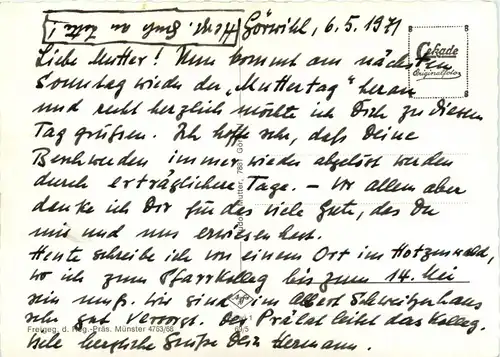 Herzl. Gruß an
Görwihl, 6.5.1971
Cekade
Originalfoto
Liebe Mutter! Nun kommt am nächsten
Sonntag wieder der „Muttertag" heran
und recht herzlich möchte ich Dich zu diesem
Tag grüßen. Ich hoffe sehr, daß Deine
Beschwerden immer wieder abgelöst werden
durch erträglichere Tage. – Vor allem aber
danke ich Dir für das viele Gute, das Du
mir und uns erwiesen hast.
Heute schreibe ich von einem Ort im Hotzenwald,
wo ich zum Pfarrkolleg bis zum 14. Mai
sein muß. Wir sind im Albert Schweitzerhaus
sehr gut versorgt. Der Prälat leitet das Kolleg.
Viele herzliche Grüße Dein Hermann.
Freigeg. d. Reg.-Präs. Münster 4753/68
69/5